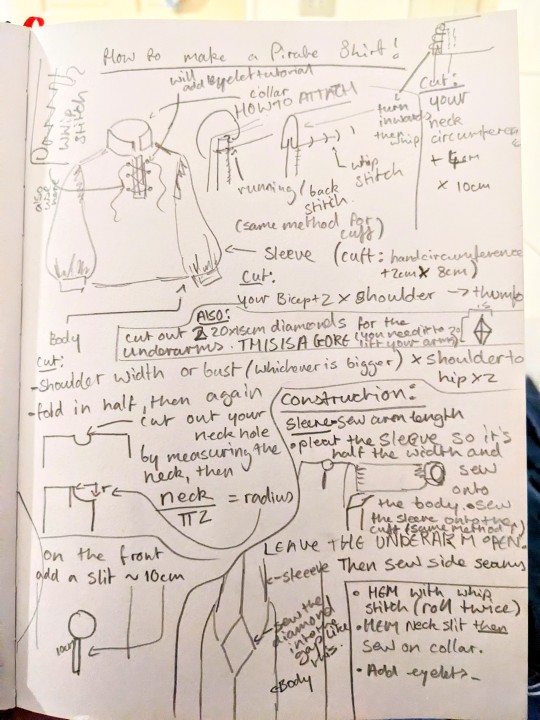 How to make a Pirate Shirt!
will add eyelet tutorial
collar
HOW TO ATTACH
WHIP STITCH
turn inwards then whip
Cut:
your
neck
circumference
+ 4cm
x 10cm
whip stitch
running/back stitch.
(same method for cuff)
Sleeve (cuff: hand circumference
+2cm x 8cm)
Cut:
your Bicep+2 x shoulder → thumb
ALSO:
cut out 2 20x15cm diamonds for the
underarms. THIS IS A GORE (you need it to
lift your arms)
15
20
Body
cut:
-shoulder width or bust (whichever is bigger) x shoulder to
hip x2
• fold in half, then again
cut out your
neck hole
by measuring the
neck, then
neck
π2
= radius
r
on the front
add a slit ~ 10cm
10cm
Construction:
Sleeve - sew arm length
• pleat the sleeve so it's
half the width and
sew
onto
the body. • sew
the sleeve onto the
cuff (same method)
LEAVE THE UNDERARM OPEN.
Then sew side seams
←sleeve
sew the
diamond
into the
gap like
this.
Body
• HEM with whip
stitch (roll twice)
• HEM neck slit then
sew on collar.
• Add eyelets